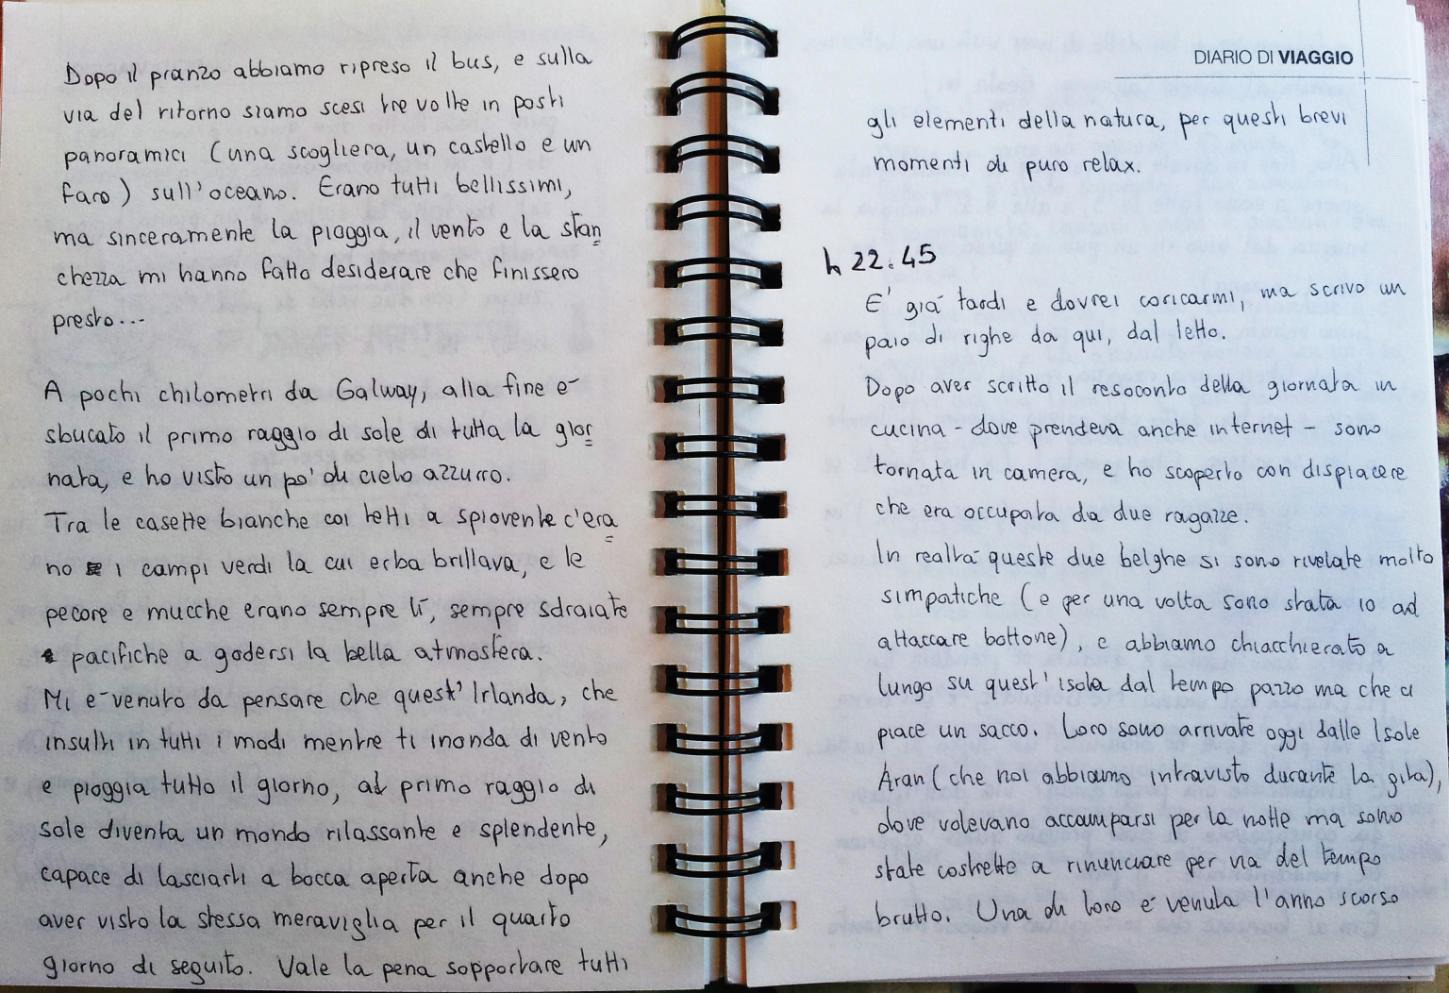 Dopo il pranzo abbiamo ripreso il bus, e sulla
via del ritorno siamo scesi tre volte in posti
panoramici (una scogliera, un castello e un
faro) sull'oceano. Erano tutti bellissimi,
ma sinceramente la pioggia, il vento e la stan
chezza mi hanno fatto desiderare che finissero
presto...
A pochi chilometri da Galway, alla fine è
sbucato il primo raggio di sole di tutta la gior
nata, e ho visto un po' di cielo azzurro.
Tra le casette bianche coi tetti a spiovente c'era
no i campi verdi la cui erba brillava, e le
pecore e mucche erano sempre lì, sempre sdraiate
e pacifiche a godersi la bella atmosfera.
Mi è venuto da pensare che quest'Irlanda, che
insulti in tutti i modi mentre ti inonda di vento
e pioggia tutto il giorno, al primo raggio di
sole diventa un mondo rilassante e splendente,
capace di lasciarti a bocca aperta anche dopo
aver visto la stessa meraviglia per il quarto
giorno di seguito. Vale la pena sopportare tutti
DIARIO DI VIAGGIO
gli elementi della natura, per questi brevi
momenti di puro relax.
h 22.45
E' già tardi e dovrei coricarmi, ma scrivo un
paio di righe da qui, dal letto.
Dopo aver scritto il resoconto della giornata in
cucina - dove prendeva anche internet - sono
tornata in camera, e ho scoperto con dispiacere
che era occupata da due ragazze.
In realtà queste due belghe si sono rivelate molto
simpatiche (e per una volta sono stata io ad
attaccare bottone), e abbiamo chiacchierato a
lungo su quest'isola dal tempo pazzo ma che ci
piace un sacco. Loro sono arrivate oggi dalle Isole
Aran (che noi abbiamo intravisto durante la gita),
dove volevano accamparsi per la notte ma sono
state costrette a rinunciare per via del tempo
brutto. Una di loro è venuta l'anno scorso